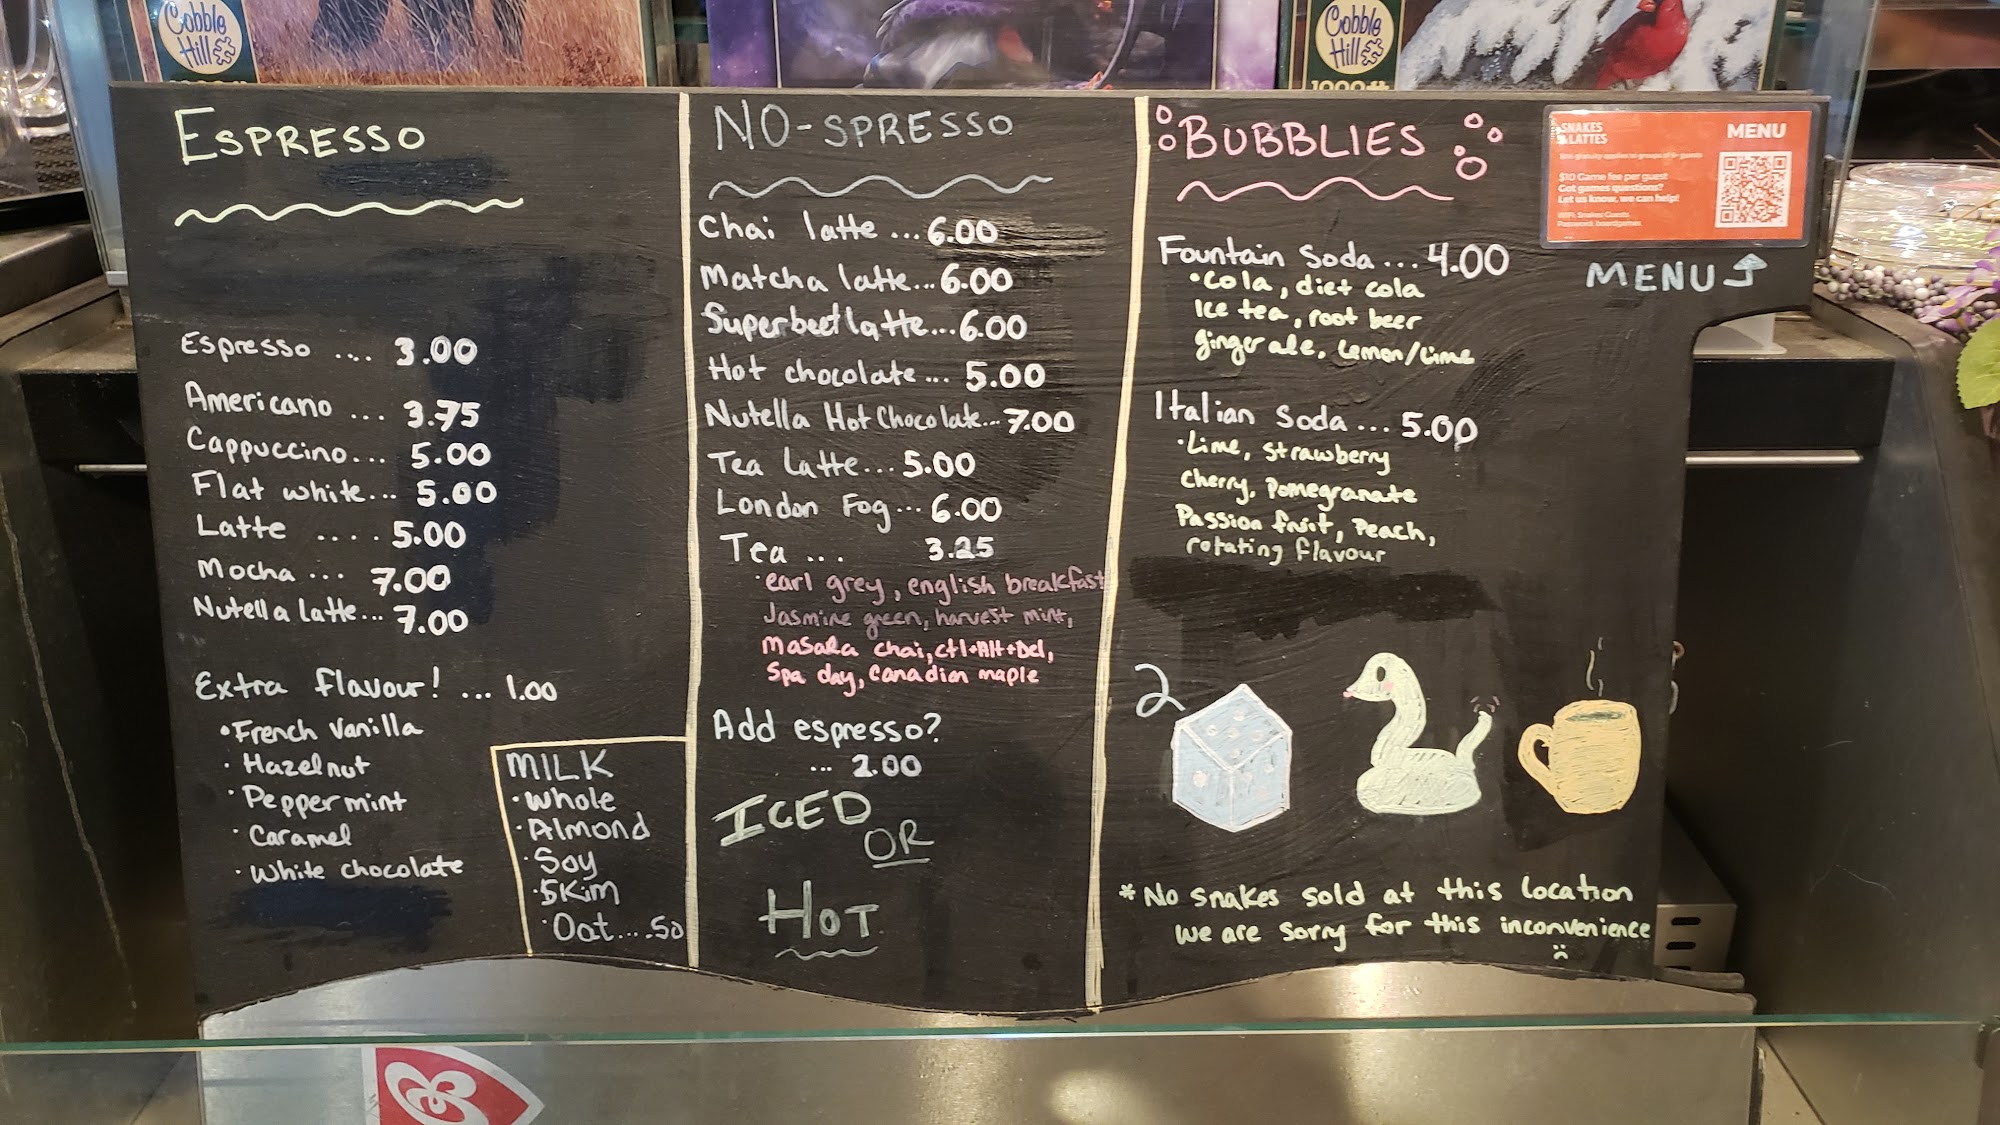 Cobble
Hill
Cobble
Hill
ESPRESSO
Espresso .... 3.00
Americano ... 3.75
Cappuccino... 5.00
Flat white... 5.00
Latte .... 5.00
Mocha ... 7.00
Nutella latte... 7.00
Extra flavour! ... 1.00
• French Vanilla
• Hazelnut
• Peppermint
• Caramel
• White chocolate
MILK
• Whole
• Almond
• Soy
• Skim
• Oat.... .50
NO-SPRESSO
Chai latte ... 6.00
Matcha latte... 6.00
Superbeet latte... 6.00
Hot chocolate... 5.00
Nutella Hot Chocolate... 7.00
Tea Latte... 5.00
London Fog... 6.00
Tea ... 3.25
• earl grey, english breakfast
Jasmine green, harvest mint,
Masala chai, ctl+Alt+Del,
Spa day, Canadian maple
Add espresso?
... 2.00
ICED
OR
HOT
BUBBLIES
Fountain Soda ... 4.00
• Cola, diet cola
Ice tea, root beer
ginger ale, Lemon/Lime
Italian Soda ... 5.00
• Lime, strawberry
Cherry, Pomegranate
Passion fruit, Peach,
rotating flavour
2
* No snakes sold at this location
we are sorry for this inconvenience
SNAKES
& LATTES
MENU
$10 Game fee per guest
Got games questions?
Let us know, we can help!
WiFi: Snakes Guests
Password: boardgames
MENU